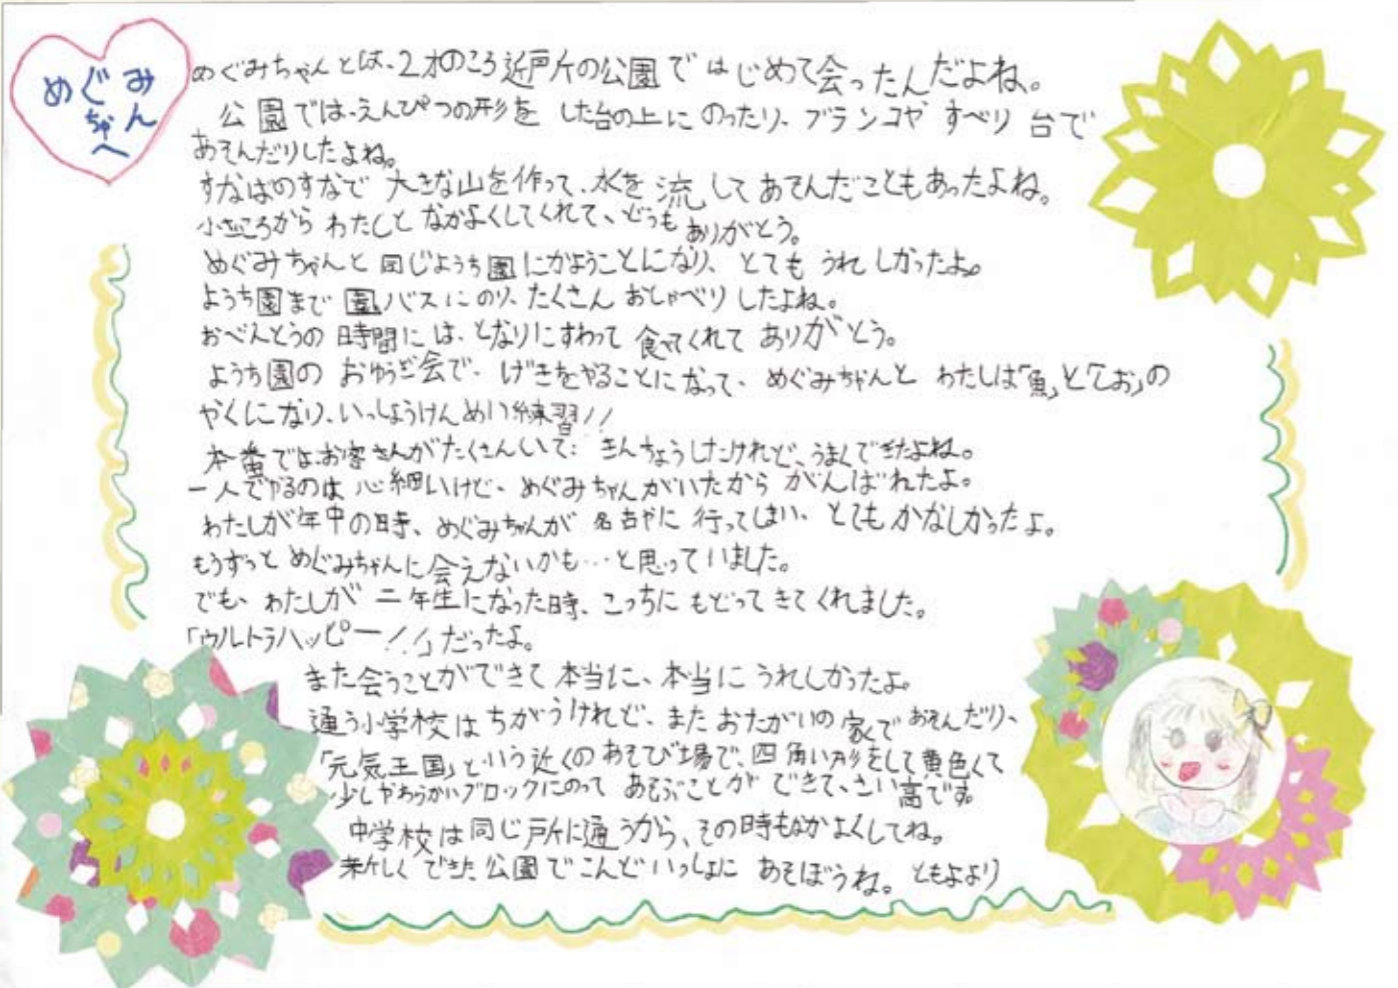 めぐみ
ちゃん
へ
めぐみちゃんとは、2才のころ近所の公園ではじめて会ったんだよね。
公園では、えんぴつの形をした台の上にのったり、ブランコやすべり台で
あそんだりしたよね。
すなばのすなで大きな山を作って、水を流してあそんだこともあったよね。
小さいころからわたしとなかよくしてくれて、どうもありがとう。
めぐみちゃんと同じようち園にかようことになり、とてもうれしかったよ。
ようち園まで園バスにのり、たくさんおしゃべりしたよね。
おべんとうの時間には、となりにすわって食べてくれてありがとう。
ようち園のおゆうぎ会で、げきをやることになって、めぐみちゃんとわたしは「魚」と「しお」の
やくになり、いっしょうけんめい練習!!
本番ではお客さんがたくさんいて、きんちょうしたけれど、うまくできたよね。
一人でやるのは心細いけど、めぐみちゃんがいたからがんばれたよ。
わたしが年中の時、めぐみちゃんが名古やに行ってしまい、とてもかなしかったよ。
もうずっとめぐみちゃんに会えないかも…と思っていました。
でも、わたしが二年生になった時、こっちにもどってきてくれました。
「ウルトラハッピー!!」だったよ。
また会うことができて本当に、本当にうれしかったよ。
通う小学校はちがうけれど、またおたがいの家であそんだり、
「元気王国」という近くのあそび場で、四角い形をして黄色くて
少しやわらかいブロックにのってあそぶことができて、さい高です。
中学校は同じ所に通うから、その時もなかよくしてね。
新しくできた公園でこんどいっしょにあそぼうね。ともよより